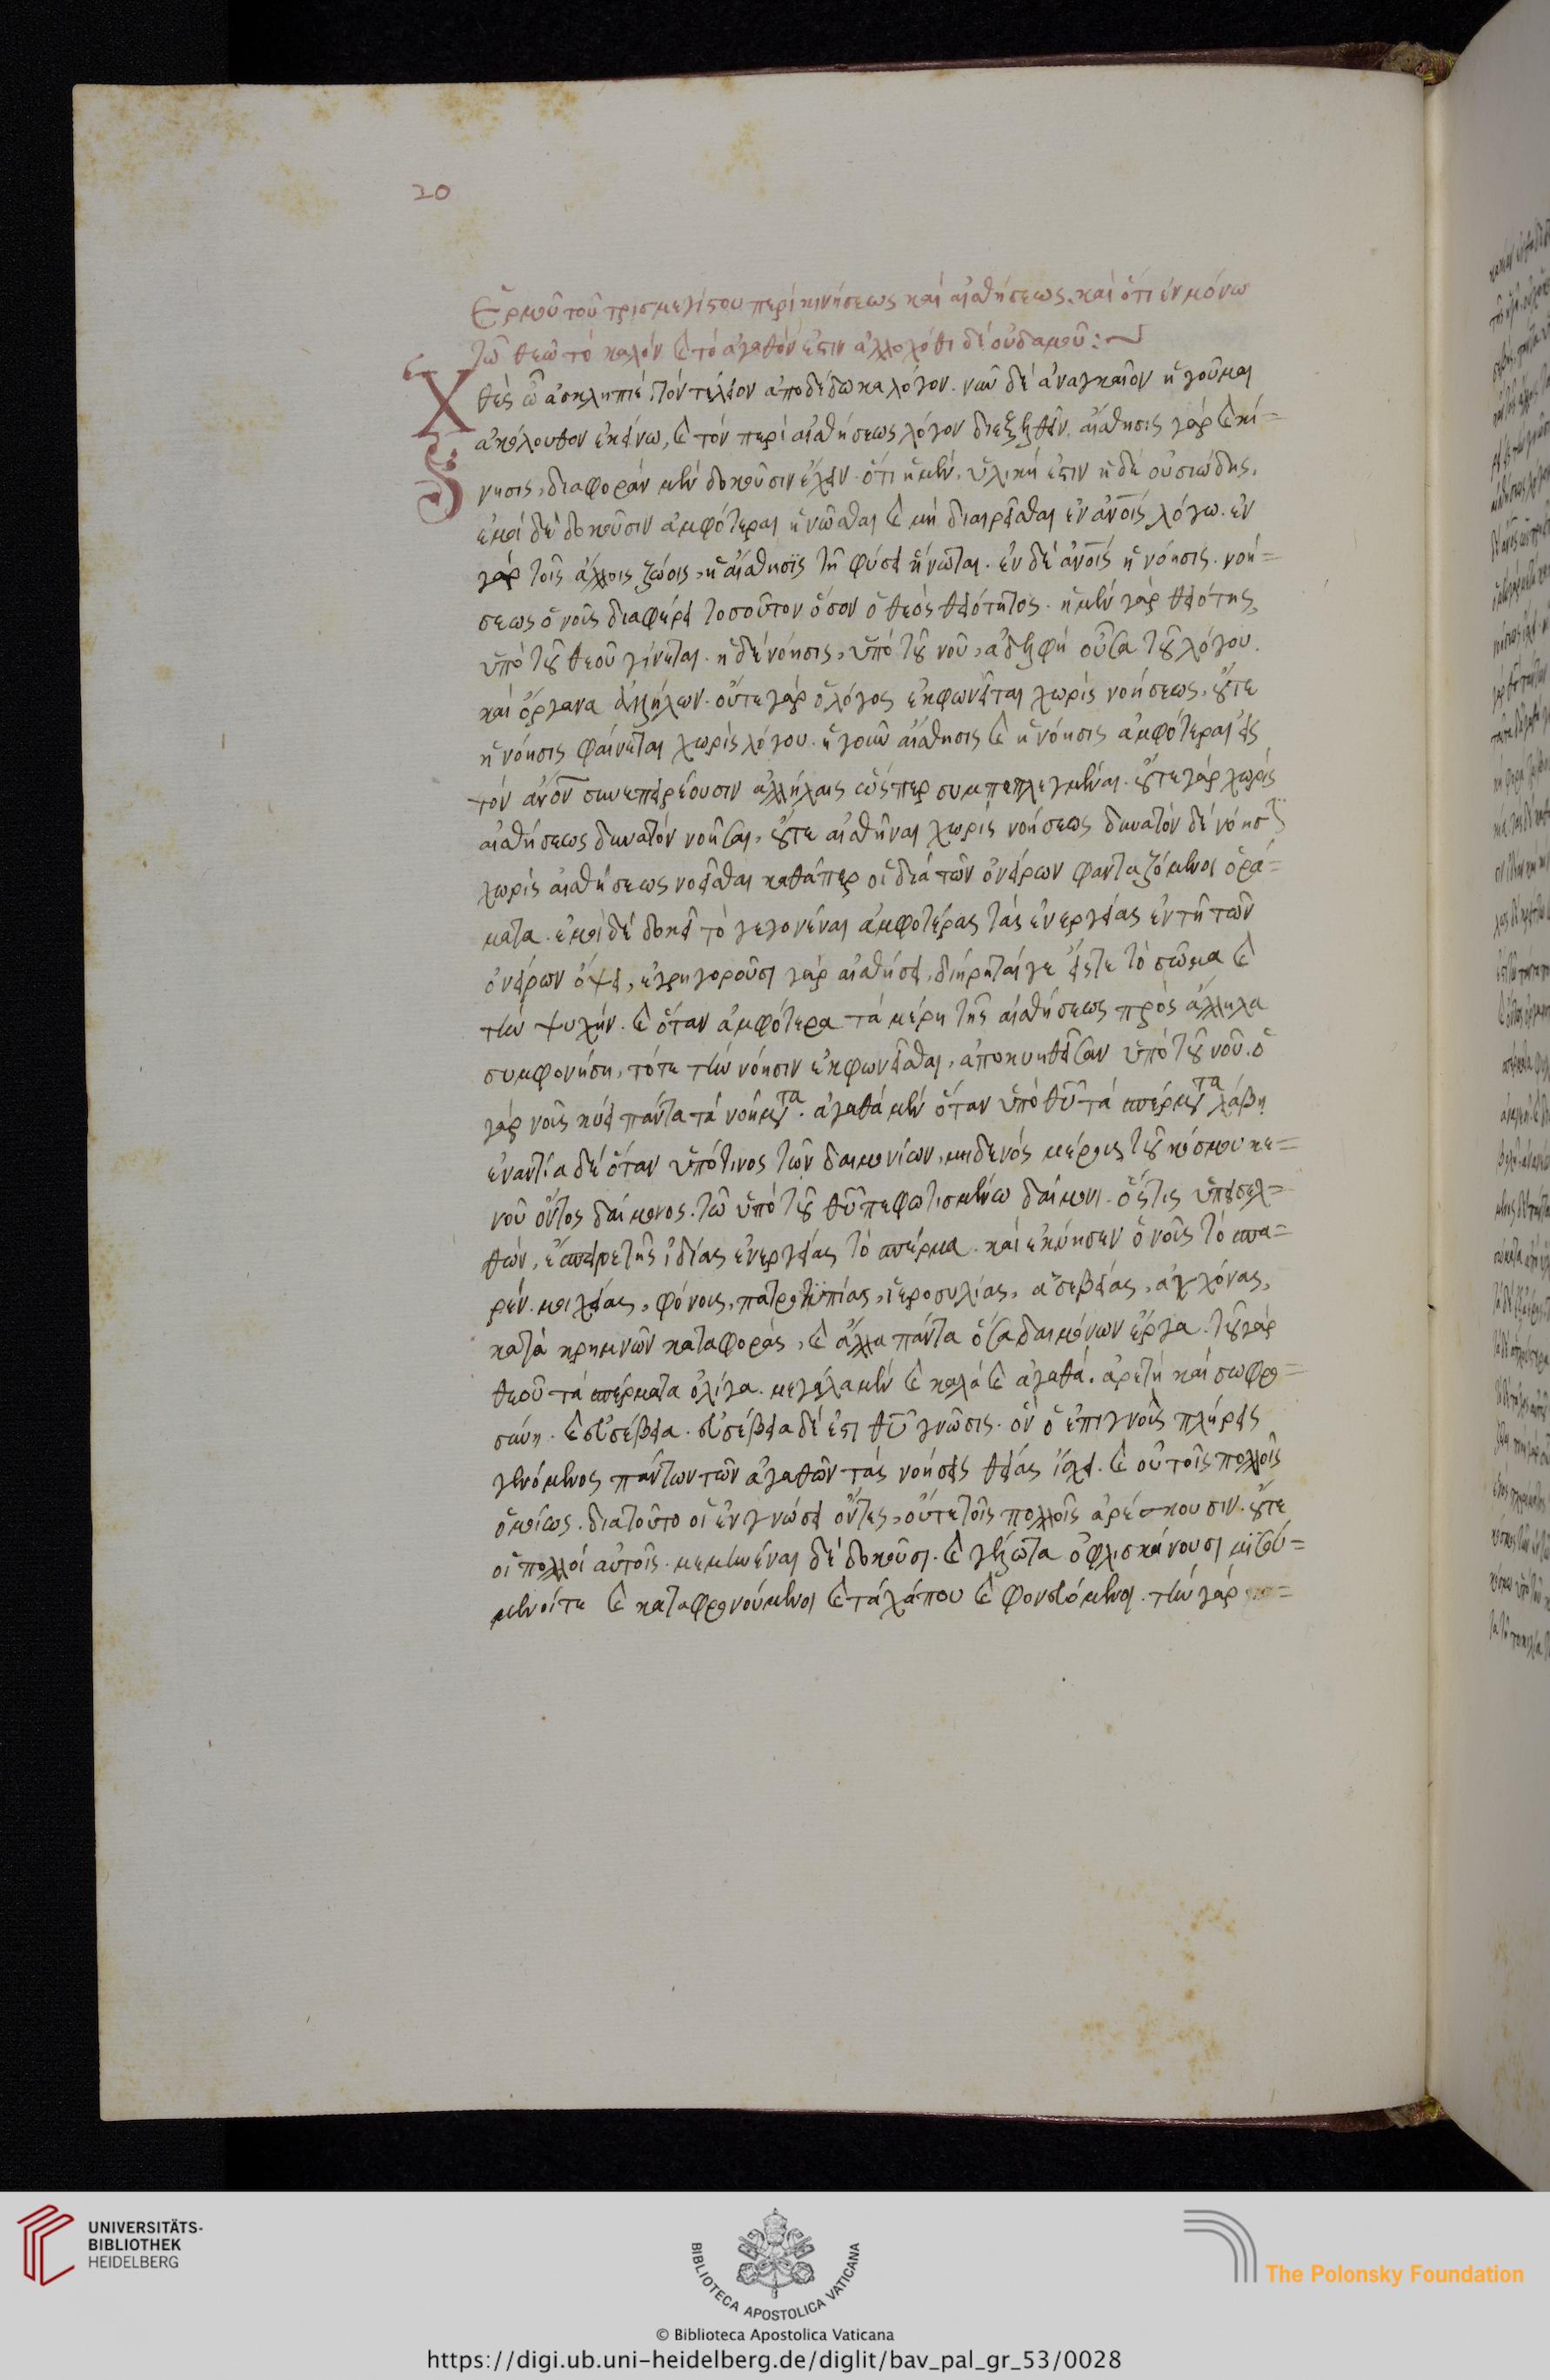 20
Ἑρμοῦ τοῦ τρισμεγίστου περὶ κινήσεως καὶ αἰσθήσεως. καὶ ὅτι ἐν μόνω
τῶ θεῶ τὸ καλόν καὶ τὸ ἀγαθόν ἐστιν ἀλλαχόθι δὲ οὐδαμοῦ:~
Χθὲς ὦ ἀσκληπιέ τὸν τέλειον ἀποδέδωκα λόγον. νῦν δὲ ἀναγκαῖον ἡγοῦμαι
ἀκόλουθον ἐκείνω, καὶ τὸν περὶ αἰσθήσεως λόγον διεξελθεῖν. αἴσθησις γὰρ καὶ κί=
νησις, διαφορὰν μὲν δοκοῦσιν ἔχειν. ὅτι ἡ μὲν, ὑλική ἐστιν ἡ δὲ οὐσιώδης.
ἐμοὶ δὲ δοκοῦσιν ἀμφότεραι ἡνῶσθαι καὶ μὴ διαιρεῖσθαι ἐν ἀνοις λόγω. ἐν
γὰρ τοῖς ἄλλοις ζώοις, ἡ αἴσθησις τῆ φύσει ἥνωται. ἐν δὲ ἀνοις ἡ νόησις. νοή=
σεως ὁ νοῦς διαφέρει τοσοῦτον ὅσον ὁ θεὸς θειότητος. ἡ μὲν γὰρ θειότης,
ὑπὸ τοῦ θεοῦ γίνεται. ἡ δὲ νόησις, ὑπὸ τοῦ νοῦ, ἀδελφὴ οὖσα τοῦ λόγου.
καὶ ὄργανα ἀλλήλων. οὔτε γὰρ ὁ λόγος ἐκφωνεῖται χωρὶς νοήσεως, οὔτε
ἡ νόησις φαίνεται χωρὶς λόγου. ἡ γοῦν αἴσθησις καὶ ἡ νόησις ἀμφότεραι εἰς
τὸν ἀνον συνεπειρέουσιν ἀλλήλαις ὥσπερ συμπεπλεγμέναι. οὔτε γὰρ χωρὶς
αἰσθήσεως δυνατὸν νοῆσαι, οὔτε αἰσθῆναι χωρὶς νοήσεως δυνατὸν δὲ νόησιν
χωρὶς αἰσθήσεως νοεῖσθαι καθάπερ οἱ διὰ τῶν ὀνείρων φανταζόμενοι ὁρά=
ματα. ἐμοὶ δὲ δοκεῖ τὸ γεγονέναι ἀμφοτέρας τὰς ἐνεργείας ἐν τῆ τῶν
ὀνείρων ὄψει, ἐγρηγοροῦσι γὰρ αἰσθήσει, διήρηταί γε εἴς τε τὸ σῶμα καὶ
τὴν ψυχήν. καὶ ὅταν ἀμφότερα τὰ μέρη τῆς αἰσθήσεως πρὸς ἄλληλα
συμφονήση, τότε τὴν νόησιν ἐκφωνεῖσθαι, ἀποκυηθεῖσαν ὑπὸ τοῦ νοῦ. ὁ
γὰρ νοῦς κύει πάντα τὰ νοήματα. ἀγαθὰ μὲν ὅταν ὑπὸ θῦ τὰ σπέρματα λάβη
ἐναντία δὲ ὅταν ὑπό τινος τῶν δαιμονίων, μηδενὸς μέρους τοῦ κόσμου κε=
νοῦ ὄντος δαίμονος. τῶ ὑπὸ τοῦ θῦ πεφωτισμένω δαίμονι. ὅστις ὑπεισελ=
θὼν, ἔσπειρε τῆς ἰδίας ἐνεργείας τὸ σπέρμα. καὶ ἐκύησεν ὁ νοῦς τὸ σπα=
ρέν. μοιχείας, φόνους, πατροτυπίας, ἱεροσυλίας, ἀσεβείας, ἀγχόνας,
κατὰ κρημνῶν καταφορὰς, καὶ ἄλλα πάντα ὅσα δαιμόνων ἔργα. τοῦ γὰρ
θεοῦ τὰ σπέρματα ὀλίγα. μεγάλα μὲν καὶ καλὰ καὶ ἀγαθά. ἀρετὴ καὶ σωφρο=
σύνη. καὶ εὐσέβεια. εὐσέβεια δέ ἐστι θῦ γνῶσις. ὃν ὁ ἐπιγνοὺς πλήρεις
γενόμενος πάντων τῶν ἀγαθῶν τὰς νοήσεις θείας ἴσχει. καὶ οὐ τοῖς πολλοῖς
ὁμοίως. διατοῦτο οἱ ἐν γνώσει ὄντες, οὔτε τοῖς πολλοῖς ἀρέσκουσιν. οὔτε
οἱ πολλοὶ αὐτοῖς. μεμηνέναι δὲ δοκοῦσι. καὶ γέλωτα ὀφλισκάνουσι μισού=
μενοί τε καὶ καταφρονούμενοι καὶ τάχα που καὶ φονευόμενοι. τὴν γὰρ
UNIVERSITÄTS-
BIBLIOTHEK
HEIDELBERG
BIBLIOTECA APOSTOLICA VATICANA
The Polonsky Foundation
© Biblioteca Apostolica Vaticana
https://digi.ub.uni-heidelberg.de/diglit/bav_pal_gr_53/0028